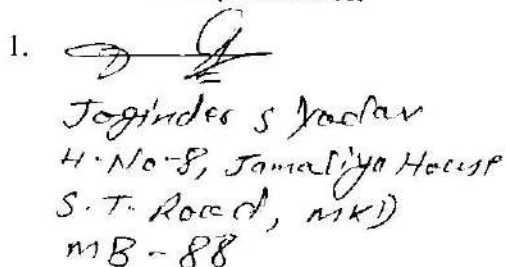 1.
Joginder S Yadav
H. No-8, Jamaliya House
S. T. Road, MKD
MB - 88